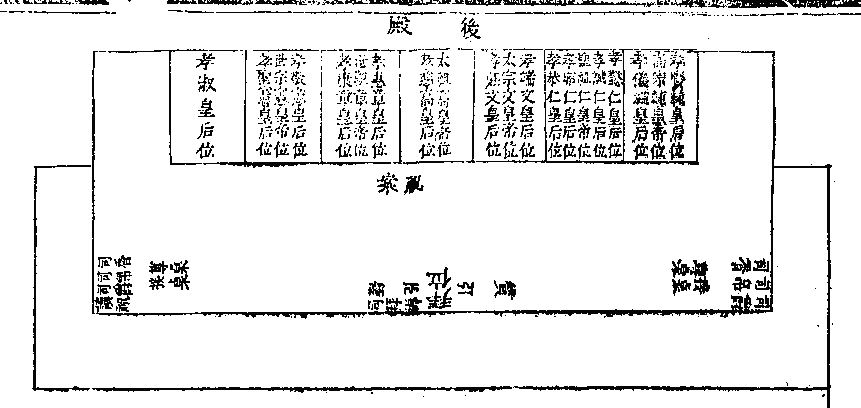 後殿
孝賢純皇后位
高宗純皇帝位
孝儀純皇后位
孝懿仁皇后位
孝誠仁皇后位
聖祖仁皇帝位
孝昭仁皇后位
孝恭仁皇后位
孝端文皇后位
太宗文皇帝位
孝莊文皇后位
太祖高皇帝位
孝慈高皇后位
孝惠章皇后位
世祖章皇帝位
孝康章皇后位
孝敬憲皇后位
世宗憲皇帝位
孝聖憲皇后位
孝淑皇后位
祝案
司香
司帛
尊桌
接桌
贊引
拜位
尊桌
接桌
司香
司帛
司爵
司祝